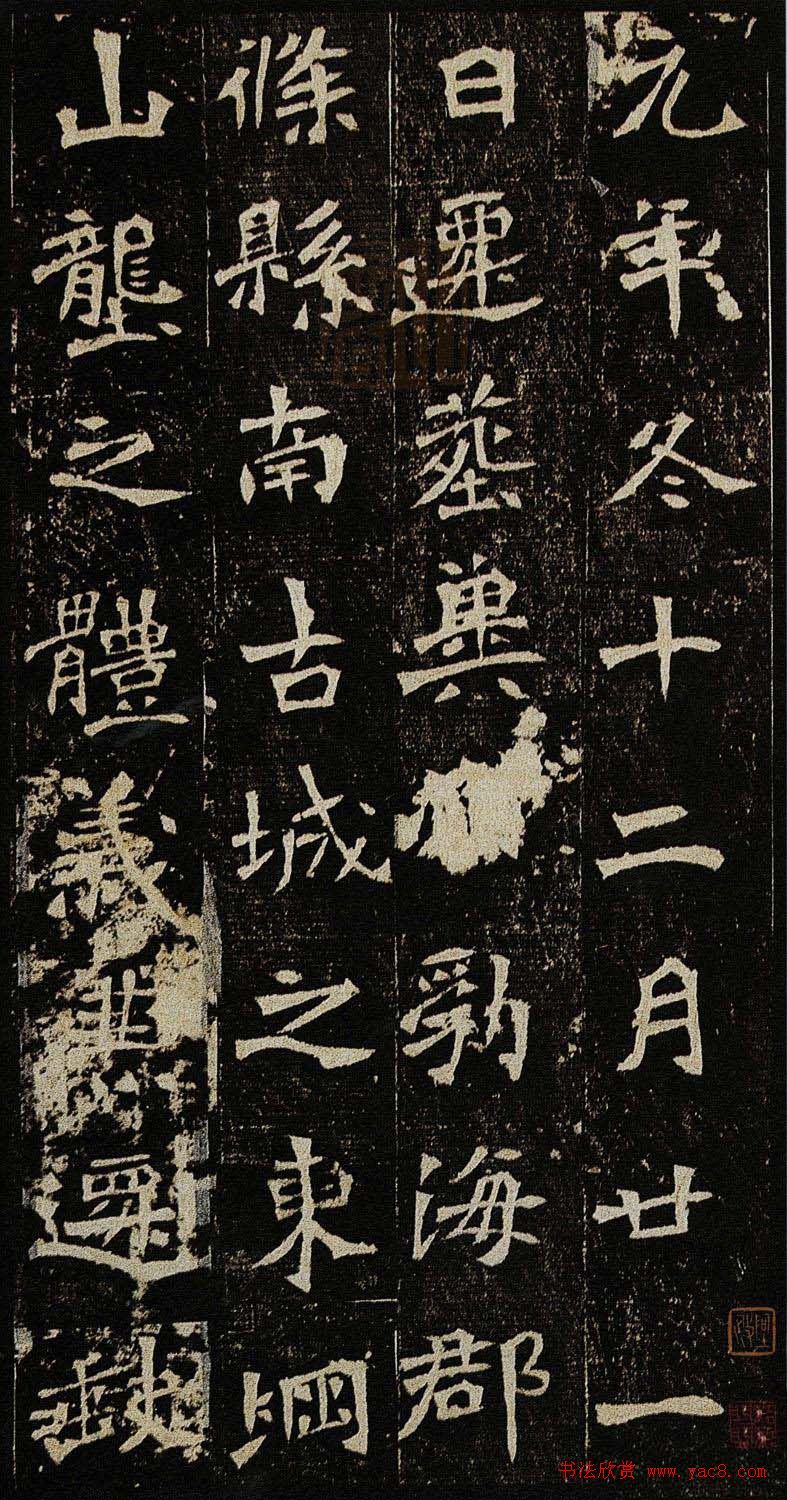 元年冬十二月廿一
日遷葬冀勃海郡
條縣南古城之東堈
山壟之體義遷
书法欣赏 www.yac8.com